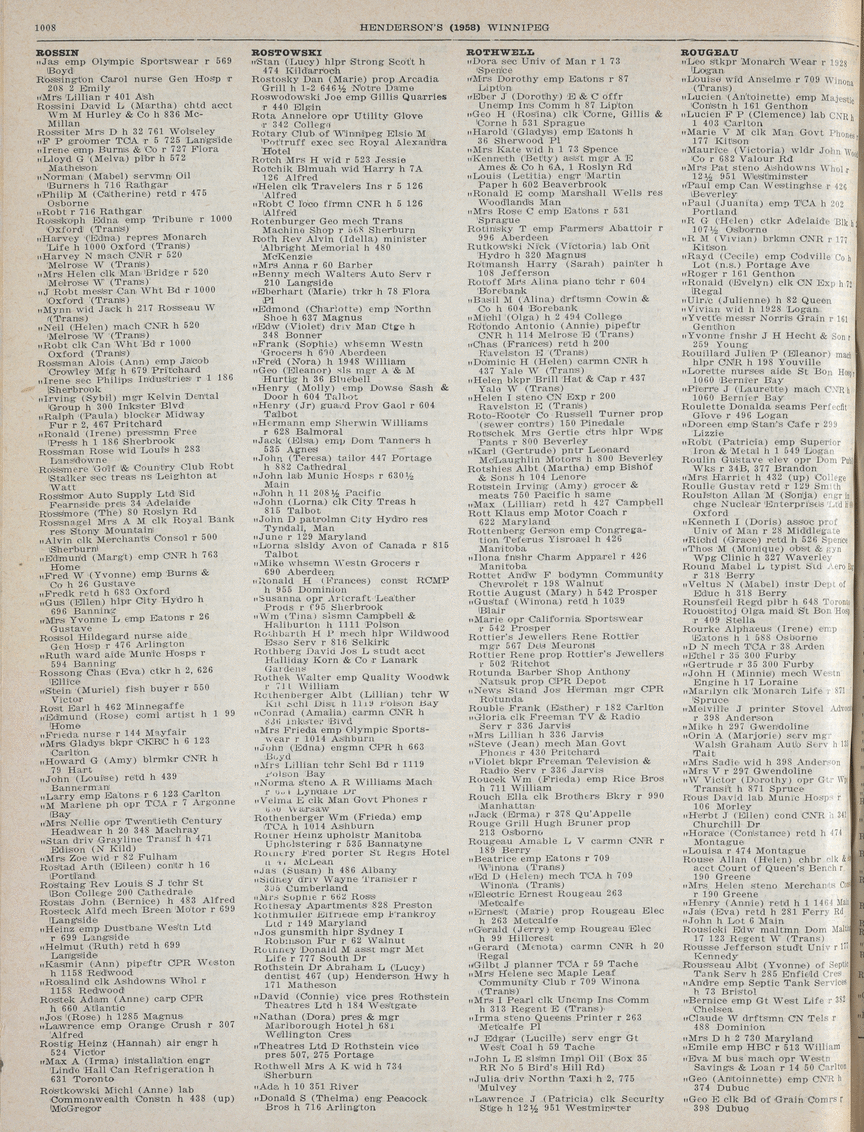 1008
HENDERSON'S (1958) WINNIPEG
ROSSIN
"Jas emp Olympic Sportswear r 569
Boyd
Rossington Carol nurse Gen Hosp r
208 2 Emily
"Mrs Lillian r 401 Ash
Rossini David L (Martha) chtd acct
Wm M Hurley & Co h 836 Mc-
Millan
Rossiter Mrs D h 32 761 Wolseley
"F P groomer TCA r 5 725 Langside
"Irene emp Burns & Co r 727 Flora
"Lloyd G (Melva) plbr h 572
Matheson
"Norman (Mabel) servmn Oil
Burners h 716 Rathgar
"Philip M (Catherine) retd r 475
Osborne
"Robt r 716 Rathgar
Rosskoph Edna emp Tribune r 1000
Oxford (Trans)
"Harvey (Edna) repres Monarch
Life h 1000 Oxford (Trans)
"Harvey N mach CNR r 520
Melrose W (Trans)
"Mrs Helen clk Man Bridge r 520
Melrose W (Trans)
"J Robt messr Can Wht Bd r 1000
Oxford (Trans)
"Mynn wid Jack h 217 Rosseau W
(Trans)
"Neil (Helen) mach CNR h 520
Melrose W (Trans)
"Robt clk Can Wht Bd r 1000
Oxford (Trans)
Rossman Alois (Ann) emp Jacob
Crowley Mfg h 679 Pritchard
"Irene sec Philips Industries r 1 186
Sherbrook
"Irving (Sybil) mgr Kelvin Dental
Group h 300 Inkster Blvd
"Ralph (Paula) blocker Midway
Fur r 2, 467 Pritchard
"Ronald (Irene) pressmn Free
Press h 1 186 Sherbrook
Rossman Rose wid Louis h 283
Lansdowne
Rossmere Golf & Country Club Robt
Stalker sec treas ns Leighton at
Watt
Rossmor Auto Supply Ltd Sid
Fearnside pres 34 Adelaide
Rossmore (The) 80 Roslyn Rd
Rossnagel Mrs A M clk Royal Bank
res Stony Mountain
"Alvin clk Merchants Consol r 500
Sherburn
"Edmund (Margt) emp CNR h 763
Home
"Fred W (Yvonne) emp Burns &
Co h 26 Gustave
"Fredk retd h 683 Oxford
"Gus (Ellen) hlpr City Hydro h
696 Banning
"Mrs Yvonne L emp Eatons r 26
Gustave
Rossol Hildegard nurse aide
Gen Hosp r 476 Arlington
"Ruth ward aide Munic Hosps r
594 Banning
Rossong Chas (Eva) ctkr h 2, 626
Ellice
"Stein (Muriel) fish buyer r 550
Victor
Rost Earl h 462 Minnegaffe
"Edmund (Rose) coml artist h 1 99
Home
"Frieda nurse r 144 Mayfair
"Mrs Gladys bkpr CKRC h 6 123
Carlton
"Howard G (Amy) blrmkr CNR h
79 Hart
"John (Louise) retd h 439
Bannerman
"Larry emp Eatons r 6 123 Carlton
"M Marlene ph opr TCA r 7 Argonne
Bay
"Mrs Nellie opr Twentieth Century
Headwear h 20 348 Machray
"Stan driv Grayline Transf h 471
Edison (N Kild)
"Mrs Zoe wid r 82 Fulham
Rostad Arth (Eileen) contr h 16
Portland
Rostaing Rev Louis S J tchr St
Bon College 200 Cathedrale
Rostas John (Bernice) h 483 Alfred
Rosteck Alfd mech Breen Motor r 699
Langside
"Heinz emp Dustbane Westn Ltd
r 699 Langside
"Helmut (Ruth) retd h 699
Langside
"Kasmir (Ann) pipeftr CPR Weston
h 1158 Redwood
"Rosalind clk Ashdowns Whol r
1158 Redwood
Rostek Adam (Anne) carp CPR
h 660 Atlantic
"Jos (Rose) h 1285 Magnus
"Lawrence emp Orange Crush r 307
Alfred
Rostig Heinz (Hannah) air engr h
524 Victor
"Max A (Irma) installation engr
Linde Hall Can Refrigeration h
631 Toronto
Rostkowski Michl (Anne) lab
Commonwealth Constn h 438 (up)
McGregor
ROSTOWSKI
"Stan (Lucy) hlpr Strong Scott h
474 Kildarroch
Rostosky Dan (Marie) prop Arcadia
Grill h 1-2 646½ Notre Dame
Roswodowski Joe emp Gillis Quarries
r 440 Elgin
Rota Annelore opr Utility Glove
r 342 College
Rotary Club of Winnipeg Elsie M
Pottruff exec sec Royal Alexandra
Hotel
Rotch Mrs H wid r 523 Jessie
Rotchik Blmuah wid Harry h 7A
126 Alfred
"Helen clk Travelers Ins r 5 126
Alfred
"Robt C loco firmn CNR h 5 126
Alfred
Rotenburger Geo mech Trans
Machine Shop r 568 Sherburn
Roth Rev Alvin (Idella) minister
Albright Memorial h 480
McKenzie
"Mrs Anna r 60 Barber
"Benny mech Walters Auto Serv r
210 Langside
"Eberhart (Marie) trkr h 78 Flora
Pl
"Edmond (Charlotte) emp Northn
Shoe h 637 Magnus
"Edw (Violet) driv Man Ctge h
348 Bonner
"Frank (Sophie) whsemn Westn
Grocers h 690 Aberdeen
"Fred (Nora) h 1948 William
"Geo (Eleanor) sls mgr A & M
Hurtig h 36 Bluebell
"Henry (Molly) emp Dowse Sash &
Door h 604 Talbot
"Henry (Jr) guard Prov Gaol r 604
Talbot
"Hermann emp Sherwin Williams
r 628 Balmoral
"Jack (Elsa) emp Dom Tanners h
535 Agnes
"John (Teresa) tailor 447 Portage
h 882 Cathedral
"John lab Munic Hosps r 630½
Main
"John h 11 208½ Pacific
"John (Lorna) clk City Treas h
815 Talbot
"John D patrolmn City Hydro res
Tyndall, Man
"June r 129 Maryland
"Lorna slsldy Avon of Canada r 815
Talbot
"Mike whsemn Westn Grocers r
690 Aberdeen
"Ronald H (Frances) const RCMP
h 955 Dominion
"Susanna opr Artcraft Leather
Prods r 695 Sherbrook
"Wm (Tina) slsmn Campbell &
Haliburton h 1111 Polson
Rothbarth H P mech hlpr Wildwood
Esso Serv r 816 Selkirk
Rothberg David Jos L studt acct
Halliday Korn & Co r Lanark
Gardens
Rothek Walter emp Quality Woodwk
r 711 William
Rothenberger Albt (Lillian) tchr W
Kil Schl Dist h 1119 Polson Bay
"Conrad (Amalia) carmn CNR h
836 Inkster Blvd
"Mrs Frieda emp Olympic Sports-
wear r 1014 Ashburn
"John (Edna) engmn CPR h 663
Boyd
"Mrs Lillian tchr Schl Bd r 1119
Polson Bay
"Norma steno A R Williams Mach
Lyndale Dr
"Velma E clk Man Govt Phones r
Warsaw
Rothenberger Wm (Frieda) emp
TCA h 1014 Ashburn
Rother Heinz upholstr Manitoba
Upholstering r 535 Bannatyne
Rothery Fred porter St Regis Hotel
McLean
"Jas (Susan) h 486 Albany
"Sidney driv Wayne Transfer r
395 Cumberland
"Mrs Sophie r 662 Ross
Rothesay Apartments 828 Preston
Rothmuller Elfriede emp Frankroy
Ltd r 149 Maryland
"Jos gunsmith hlpr Sydney I
Robinson Fur r 62 Walnut
Rothney Donald M asst mgr Met
Life r 777 South Dr
Rothstein Dr Abraham L (Lucy)
dentist 467 (up) Henderson Hwy h
171 Matheson
"David (Connie) vice pres Rothstein
Theatres Ltd h 184 Westgate
"Nathan (Dora) pres & mgr
Marlborough Hotel h 681
Wellington Cres
"Theatres Ltd D Rothstein vice
pres 507, 275 Portage
Rothwell Mrs A K wid h 734
Sherburn
"Ada h 10 351 River
"Donald S (Thelma) eng Peacock
Bros h 716 Arlington
ROTHWELL
"Dora sec Univ of Man r 1 73
Spence
"Mrs Dorothy emp Eatons r 87
Lipton
"Eber J (Dorothy) E & C offr
Unemp Ins Comm h 87 Lipton
"Geo H (Rosina) clk Corne, Gillis &
Corne h 531 Sprague
"Harold (Gladys) emp Eatons h
36 Sherwood Pl
"Mrs Kate wid h 1 73 Spence
"Kenneth (Betty) asst mgr A E
Ames & Co h 6A, 1 Roslyn Rd
"Louis (Letitia) engr Martin
Paper h 602 Beaverbrook
"Ronald E comp Marshall Wells res
Woodlands Man
"Mrs Rose C emp Eatons r 531
Sprague
Rotinsky T emp Farmers Abattoir r
996 Aberdeen
Rutkowski Nick (Victoria) lab Ont
Hydro h 320 Magnus
Rotmansh Harry (Sarah) painter h
108 Jefferson
Rotoff Mrs Alina piano tchr r 604
Borebank
"Basil M (Alina) drftsmn Cowin &
Co h 604 Borebank
"Michl (Olga) h 2 494 College
Rotondo Antonio (Annie) pipeftr
CNR h 114 Melrose E (Trans)
"Chas (Frances) retd h 200
Ravelston E (Trans)
"Dominic H (Helen) carmn CNR h
437 Yale W (Trans)
"Helen bkpr Brill Hat & Cap r 437
Yale W (Trans)
"Helen I steno CN Exp r 200
Ravelston E (Trans)
Roto-Rooter Co Russell Turner prop
(sewer contrs) 150 Pinedale
Rotschek Mrs Gertie ctrs hlpr Wpg
Pants r 800 Beverley
"Karl (Gertrude) pntr Leonard
McLaughlin Motors h 800 Beverley
Rotshies Albt (Martha) emp Bishof
& Sons h 104 Lenore
Rotstein Irving (Amy) grocer &
meats 750 Pacific h same
"Max (Lillian) retd h 427 Campbell
Rott Klaus emp Motor Coach r
622 Maryland
Rottenberg Gerson emp Congrega-
tion Teferus Yisroael h 426
Manitoba
"Ilona fnshr Charm Apparel r 426
Manitoba
Rottet Andw F bodymn Community
Chevrolet r 198 Walnut
Rottie August (Mary) h 542 Prosper
"Gustaf (Winona) retd h 1039
Blair
"Marie opr California Sportswear
r 542 Prosper
Rottier's Jewellers Rene Rottier
mgr 567 Des Meurons
Rottier Rene prop Rottier's Jewellers
r 502 Ritchot
Rotunda Barber Shop Anthony
Natsuk prop CPR Depot
"News Stand Jos Herman mgr CPR
Rotunda
Rouble Frank (Esther) r 182 Carlton
"Gloria clk Freeman TV & Radio
Serv r 336 Jarvis
"Mrs Lillian h 336 Jarvis
"Steve (Jean) mech Man Govt
Phones r 430 Pritchard
"Violet bkpr Freeman Television &
Radio Serv r 336 Jarvis
Roucek Wm (Frieda) emp Rice Bros
h 711 William
Rouch Ella clk Brothers Bkry r 990
Manhattan
"Jack (Erma) r 378 Qu'Appelle
Rouge Grill Hugh Bruner prop
213 Osborne
Rougeau Amable L V carmn CNR r
189 Berry
"Beatrice emp Eatons r 709
Winona (Trans)
"Ed D (Helen) mech TCA h 709
Winona (Trans)
"Electric Ernest Rougeau 263
Metcalfe
"Ernest (Marie) prop Rougeau Elec
h 263 Metcalfe
"Gerald (Jerry) emp Rougeau Elec
h 99 Hillcrest
"Gerard (Menota) carmn CNR h 20
Regal
"Gilbt J planner TCA r 59 Tache
"Mrs Helene sec Maple Leaf
Community Club r 709 Winona
(Trans)
"Mrs I Pearl clk Unemp Ins Comm
h 313 Regent E (Trans)
"Irma steno Queens Printer r 263
Metcalfe Pl
"J Edgar (Lucille) serv engr Gt
West Coal h 59 Tache
"John L E slsmn Impl Oil (Box 35
RR No 5 Bird's Hill Rd)
"Julia driv Northn Taxi h 2, 775
Mulvey
"Lawrence J (Patricia) clk Security
Stge h 12½ 951 Westminster
ROUGEAU
"Leo stkpr Monarch Wear r 1928
Logan
"Louise wid Anselme r 709 Winona
(Trans)
"Lucien (Antoinette) emp Majestic
Constn h 161 Genthon
"Lucien F P (Clemence) lab CNR h
1 403 Carlton
"Marie V M clk Man Govt Phones
177 Kitson
"Maurice (Victoria) wldr John
Co r 682 Valour Rd
"Mrs Pat steno Ashdowns Whol r
12½ 951 Westminster
"Paul emp Can Westinghse r 426
Beverley
"Paul (Juanita) emp TCA h 202
Portland
"R G (Helen) ctkr Adelaide Blk h
107½ Osborne
"R M (Vivian) brkmn CNR r 177
Kitson
"Rayd (Cecile) emp Codville Co h
Lot (n.s.) Portage Ave
"Roger r 161 Genthon
"Ronald (Evelyn) clk CN Exp h 72
Regal
"Ulric (Julienne) h 82 Queen
"Vivian wid h 1928 Logan
"Yvette messr Norris Grain r 161
Genthon
"Yvonne fnshr J H Hecht & Son r
259 Young
Rouillard Julien P (Eleanor) mach
hlpr CNR h 198 Youville
"Lorette nurses aide St Bon Hosp
1060 Bernier Bay
"Pierre J (Laurette) mach CNR h
1060 Bernier Bay
Roulette Donalda seams Perfecfit
Glove r 496 Logan
"Doreen emp Stan's Cafe r 299
Lizzie
"Robt (Patricia) emp Superior
Iron & Metal h 1 549 Logan
Roulin Gustave elev opr Dom Pub
Wks r 34B, 377 Brandon
"Mrs Harriet h 432 (up) College
Roulle Gustav retd r 129 Smith
Roulston Allan M (Sonja) engr in
chge Nuclear Enterprises Ltd h
Oxford
"Kenneth I (Doris) assoc prof
Univ of Man r 28 Middlegate
"Richd (Grace) retd h 526 Spence
"Thos M (Monique) obst & gyn
Wpg Clinic h 327 Waverley
Round Mabel L typist Sid Aero
r 318 Berry
"Veltus N (Mabel) instr Dept of
Educ h 318 Berry
Rounsfell Regd plbr h 648 Toronto
Rouostitoj Olga maid St Bon Hosp
r 409 Stella
Rourke Alphaeus (Irene) emp
Eatons h 1 588 Osborne
"D N mech TCA r 38 Arden
"Ethel r 35 300 Furby
"Gertrude r 35 300 Furby
"John H (Minnie) mech Westn
Engine h 17 Loraine
"Marilyn clk Monarch Life r 871
Spruce
"Melville J printer Stovel Advocate
r 398 Anderson
"Mike h 297 Gwendoline
"Orin A (Marjorie) serv mgr
Walsh Graham Auto Serv h
Tait
"Mrs Sadie wid h 398 Anderson
"Mrs V r 297 Gwendoline
"W Victor (Dorothy) opr Gtr Wpg
Transit h 871 Spruce
Rous David lab Munic Hosps r
106 Morley
"Herbt J (Ellen) cond CNR h
Churchill Dr
"Horace (Constance) retd h 474
Montague
"Louisa r 474 Montague
Rouse Allan (Helen) chbr clk &
acct Court of Queen's Bench r
190 Greene
"Mrs Helen steno Merchants
r 190 Greene
"Henry (Annie) retd h 1 1464 Main
"Jas (Eva) retd h 281 Ferry Rd
"John h Lot 6 Main
Rousicki Edw maltmn Dom
17 123 Regent W (Trans)
Rousse Jefferson studt Univ r 177
Kennedy
Rousseau Albt (Yvonne) of Septic
Tank Serv h 285 Enfield Cres
"Andre emp Septic Tank Services
h 73 Bristol
"Bernice emp Gt West Life r 382
Chelsea
"Claude W drftsmn CN Tels r
488 Dominion
"Mrs D h 2 730 Maryland
"Emile emp HBC r 513 William
"Eva M bus mach opr Westn
Savings & Loan r 14 50 Carlton
"Geo (Antoinette) emp CNR h
374 Dubuc
"Geo E clk Bd of Grain Comrs r
398 Dubuc